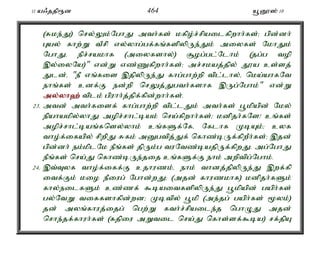 11 யஃததிரூன 464 யூனுஸ் 10
(சுமந்து) செல்லும்போது அவர்கள் மகிழ்ச்சியடைகிறார்கள்; பின்னர்
புயல் காற்று வீசி எல்லாப்பக்கங்களிலிருந்தும் அலைகள் மோதும்
போது, நிச்சயமாக (அலைகளால்) சூழப்பட்டோம் (தப்ப வழி
இல்லையே)" என்று எண்ணுகிறார்கள்; அச்சமயத்தில் தூய உள்ளத்
துடன், "நீ எங்களை இதிலிருந்து காப்பாற்றி விட்டால், மெய்யாகவே
நாங்கள் உனக்கு நன்றி செலுத்துபவர்களாக இருப்போம்" என்று
அல்லாஹ் விடம் பிரார்த்திக்கின்றார்கள்.
23. அவன் அவர்களைக் காப்பாற்றி விட்டதும் அவர்கள் பூமியின் மேல்
நியாயமில்லாது அழிச்சாட்டியம் செய்கிறார்கள்; மனிதர்களே! உங்கள்
அழிச்சாட்டியங்களெல்லாம் உங்களுக்கே கேடாக முடியும்; உலக
வாழ்க்கையில் சிறிது சுகம் அனுபவித்துக் கொண்டிருக்கிறீர்கள்; இதன்
பின்னர் நம்மிடமே நீங்கள் திரும்ப வரவேண்டியதிருக்கிறது. அப்போது
நீங்கள் செய்து கொண்டிருந்ததை உங்களுக்கு நாம் அறிவிப்போம்.
24. இவ்வுலக வாழ்க்கைக்கு உதாரணம், நாம் வானத்திலிருந்து இறக்கி
வைக்கும் மழை நீரைப் போன்றது; (அதன் காரணமாக) மனிதர்களும்
கால்நடைகளும் உண்ணக் கூடியவைகளிலிருந்து பூமியின் பயிர்கள்
பல்வேறு வகைகளாகின்றன; முடிவில் பூமி (அந்தப் பயிர்கள் மூலம்)
தன் அலங்காரத்தைப் பெற்று கவர்ச்சியடைந்த பொழுது அதன்
சொந்தக்காரர்கள் (கதிரை அறுவடை செய்து கொள்ளக்கூடிய) சக்தியு